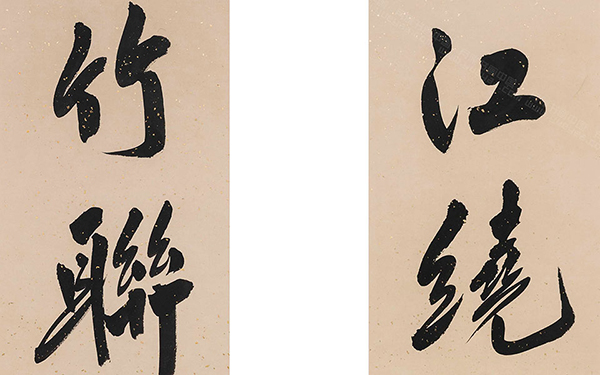 江繞
竹聯